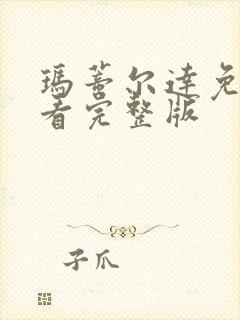 瑪蒂尔達免
看完整版
子爪